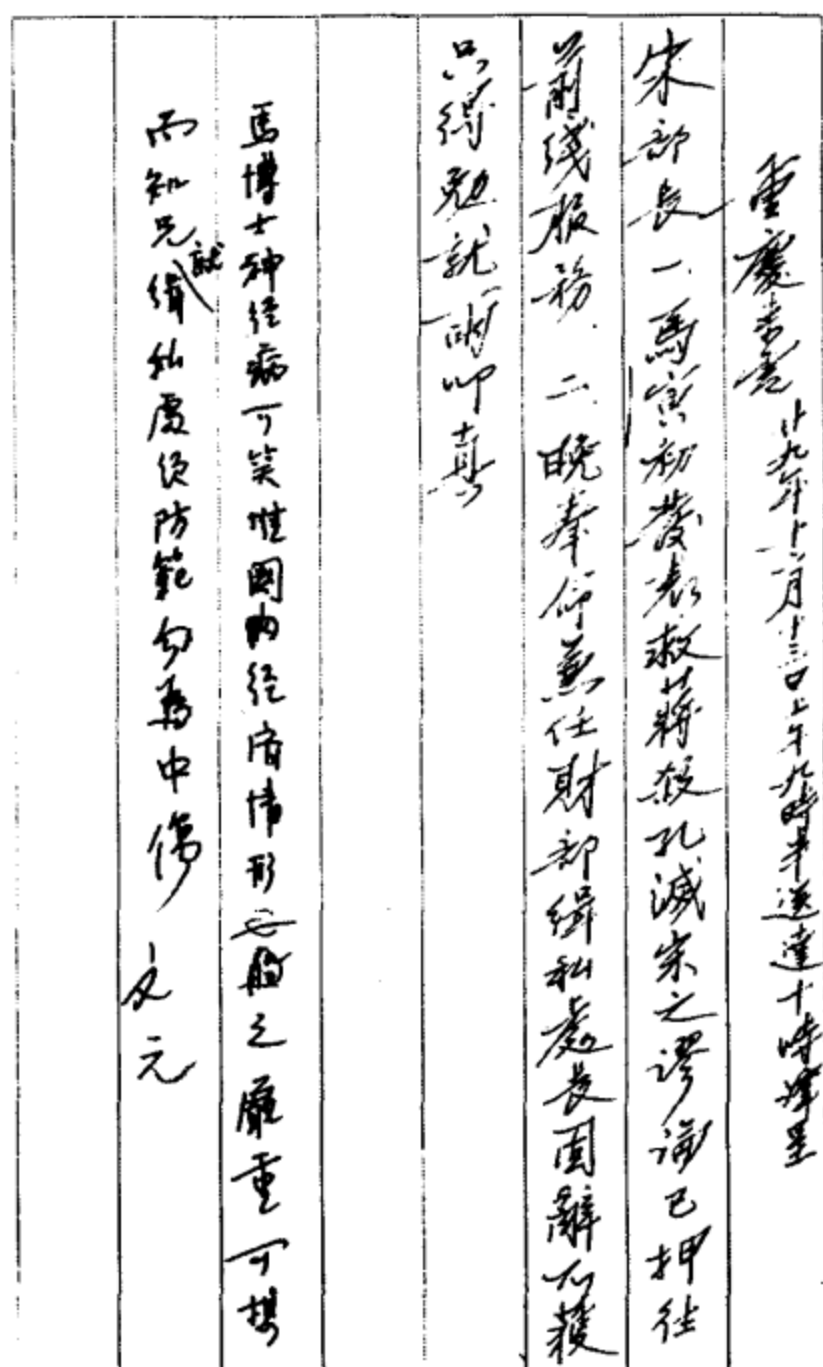 重慶 廿九年十二月十三日上午九時半送達十時譯呈
宋部長一、馬寅初發表救蔣殺孔滅宋之謬論已押往
前綫服務.二、晚奉命兼任財部緝私處長固辭不獲
只得勉就 叩真
馬博士神经病可笑惟國内经濟情形之嚴重可想
而知兄就緝私處須防範勿為中傷 文元